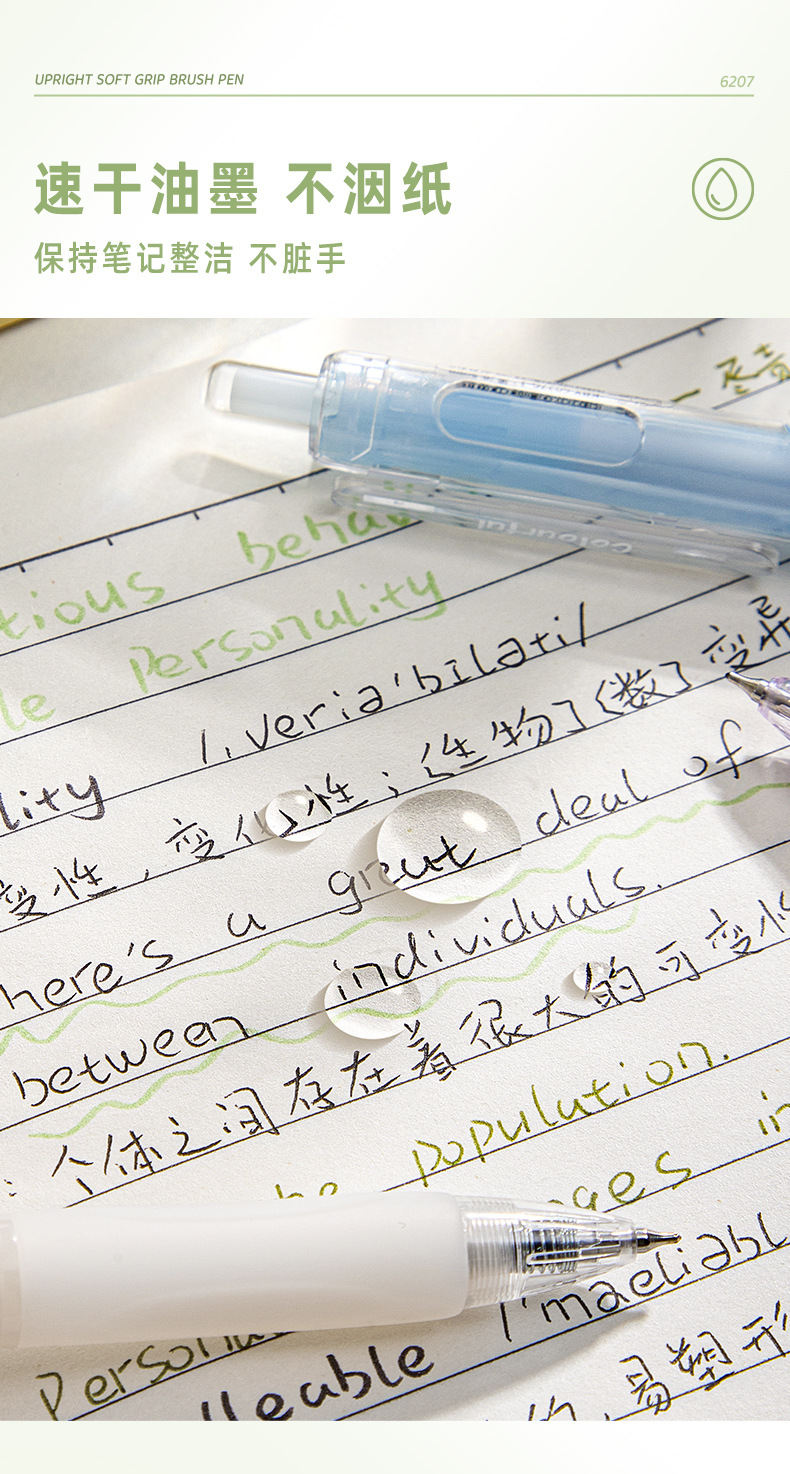 UPRIGHT SOFT GRIP BRUSH PEN
6207
速干油墨 不洇纸
保持笔记整洁 不脏手
colourful
tious behav
le Personality
lity /,veria'bilətil
变性，变化性；〔生物〕〔数〕变异
here's a great deal of
between individuals.
：个体之间存在着很大的可变性
he population.
ges in
Person
lleable /'mæeliəbl
的，易塑形